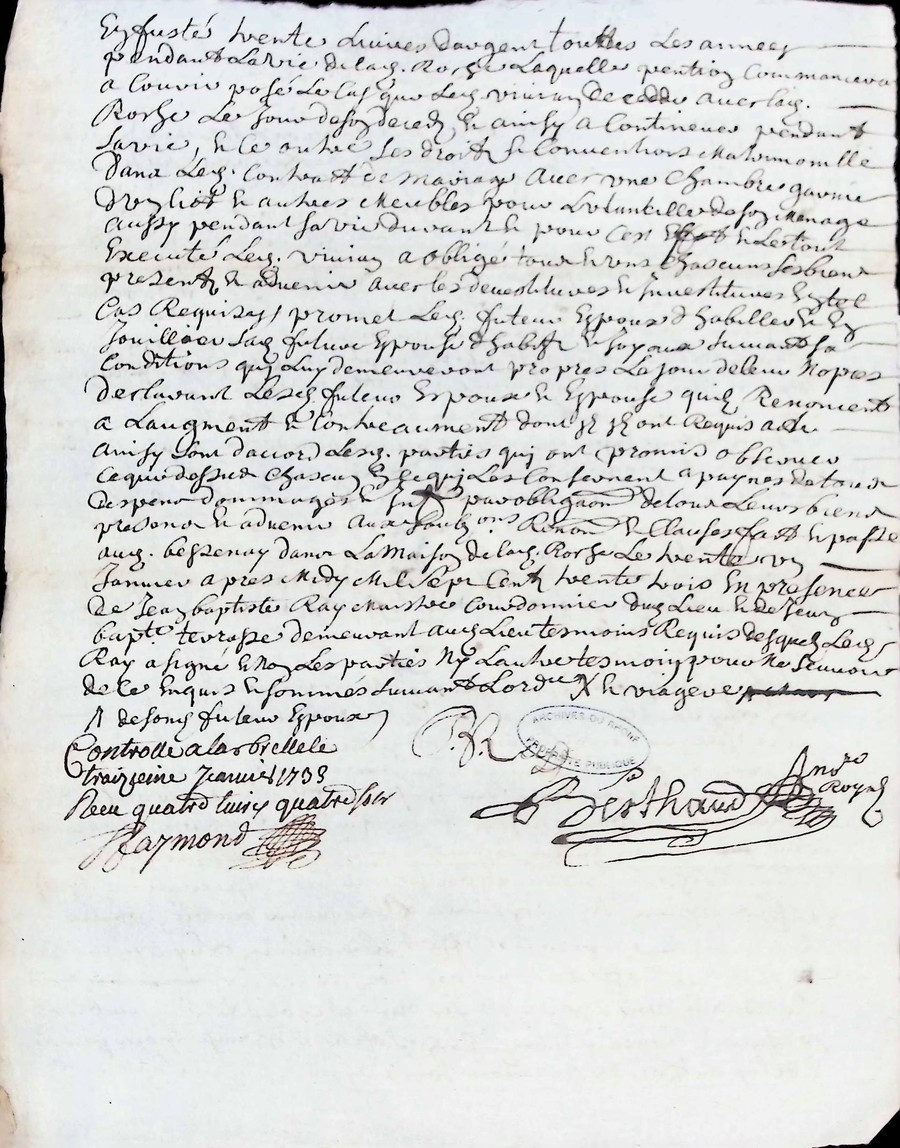 trente Livres dargent touttes Les années
pendant La vie de lad. Roche Laquelle pention Commancera
a Courir posé Le Cas que Led. decede avec lad.
Roche Le Jour de son deced, & ainsy a Continuer pendant
sa vie, & ce outre ses droits & Conventions Matrimonielle
dans Led. Contract de Mariage avec une Chambre garnie
dun lict & autres Meubles pour de son Menage
aussy pendant sa vie durant & pour Cest Effect & Le tout
Executé Led. a obligé tous Chascuns ses biens
present & advenir avec les devestitures & Investitures En tel
Cas Requises, promet Led. futeur Espoux d habiller & En
Jouilliver Lad future Espouse d habits & Joyaux suivant sa
Conditions qui Luy demeureront propres Le jour de leur Nopces
declarant Lesd. futeur Espoux & Espouse quils Renoncent
a Laugment & Contreaument dont Ils ont Requis acte
ainsy sont daccord Lesd. parties qui ont promis observer
ce que dessus Chascun En ce qui Les Concernent a paynes de tous
despens dommages & par obligaon de tous Leurs biens
presens & advenir aux Renon & Clauses fait & passé
aud. bessenay dans La Maison de lad. Roche Le trente un
Janvier apres Midy Mil Sept Cent trente trois En presence
de Jean baptiste Ray Maistre Courdonnier dud Lieu & de Jean
bapte terrasse demeurant aud Lieu tesmoins Requis desquels Led
Ray a signé & Non Les parties Ny Lautre tesmoin pour ne scavoir
de ce Enquis & sommés suivant Lordce X & viagere
de sond futeur Espoux
Controllé a larbrelle le
traizieme 1733
Receu quatre livres quatre sols
Raymond
BR
ARCHIVES DU RHONE
PROPRIÉTÉ PUBLIQUE
Berthaud
Nore
Royal